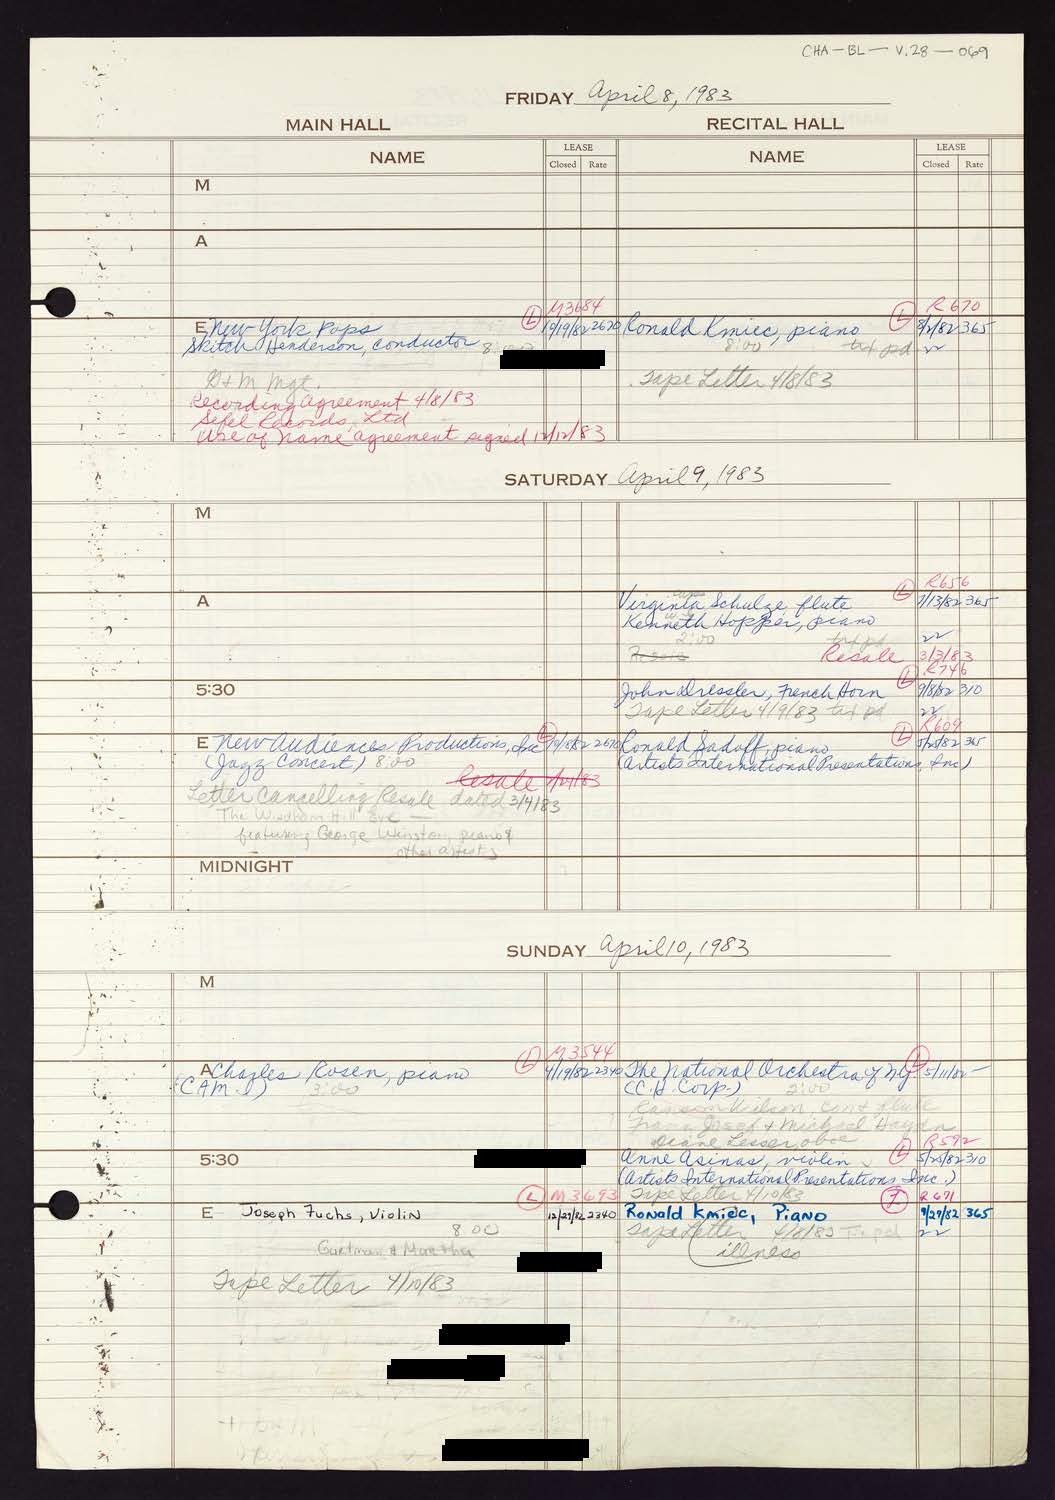 CHA-BL- V.28-069
FRIDAY April 8, 1983
MAIN HALL
RECITAL HALL
NAME
LEASE
Closed Rate
NAME
LEASE
Closed Rate
M
A
M3684
R670
E New York Pops (L) 10/19/82 2670
Skitch Henderson, conductor
D+M Mgt.
Recording agreement 4/8/83
Sefel Records, Ltd
Use of name agreement signed 12/12/83
Ronald Kmiec, piano (L) 9/2/82 365
8:00 txt pd
Tape Letter 4/8/83
SATURDAY April 9, 1983
M
A
R656
Virginia Schulze flute (L) 7/13/82 365
Kenneth Hopper, piano
2:00 txt pd
Resale 3/3/83
R746
5:30
John Dressler, French Horn (L) 9/8/82 310
Tape Letter 4/9/83 txt pd
R609
E New Audiences Productions, Inc (L) 2670
(Jazz Concert) 8:00
Resale
Letter Cancelling Resale dated 3/4/83
The Windham Hill Eve —
featuring George Winston, piano &
other artists
Ronald Sadoff, piano (L) 5/25/82 365
(Artists International Presentations, Inc)
MIDNIGHT
SUNDAY April 10, 1983
M
M3544
A Charles Rosen, piano (L) 4/19/82 2340
(CAM.I) 3:00
The National Orchestra of NY (L) 5/11/82 -
(C.H. Corp.) 2:00
Ransom Wilson, cond + flute
Franz Josef + Michael Haydn
Diane Lesser, oboe
R592
5:30
Anne Asinas, violin (L) 5/25/82 310
(Artists International Presentations Inc.)
Tape Letter 4/10/83
(L) M3693
R671
E Joseph Fuchs, Violin 12/27/82 2340
8 00
Tape Letter 4/10/83
Ronald Kmiec, Piano 9/27/82 365
Tape Letter 4/8/83 Txt pd
illness